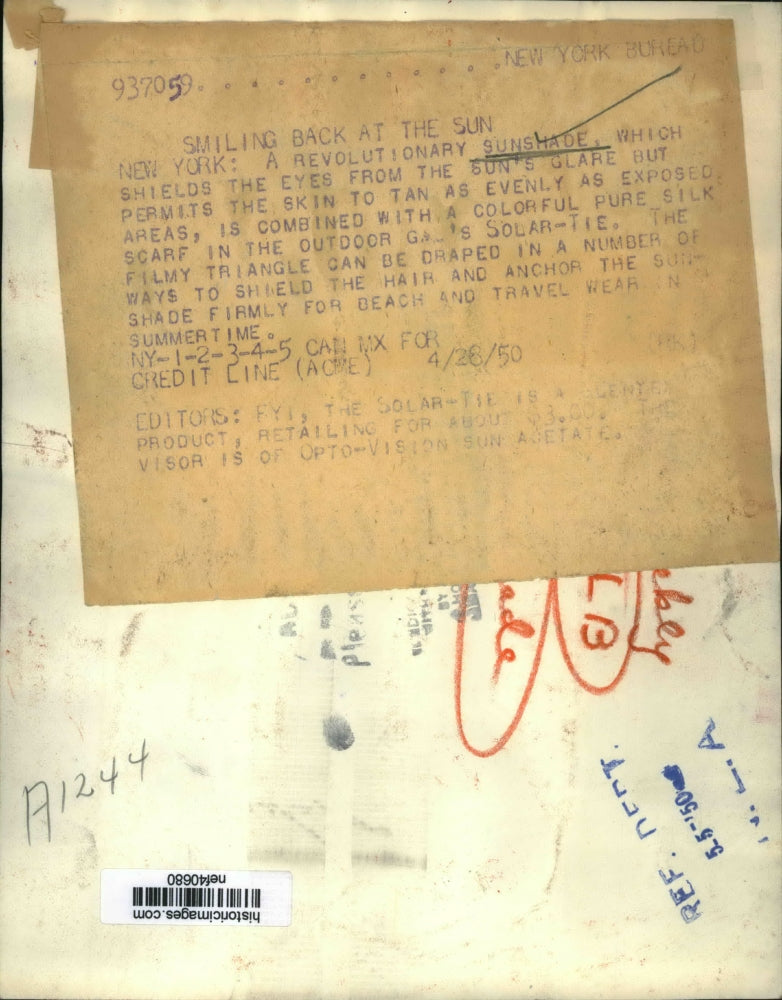 937059. . . . . . . . . . . . .NEW YORK BUREAU
SMILING BACK AT THE SUN
NEW YORK: A REVOLUTIONARY SUNSHADE, WHICH
SHIELDS THE EYES FROM THE SUN'S GLARE BUT
PERMITS THE SKIN TO TAN AS EVENLY AS EXPOSED
AREAS, IS COMBINED WITH A COLORFUL PURE SILK
SCARF IN THE OUTDOOR GAL'S SOLAR-TIE. THE
FILMY TRIANGLE CAN BE DRAPED IN A NUMBER OF
WAYS TO SHIELD THE HAIR AND ANCHOR THE SUN-
SHADE FIRMLY FOR BEACH AND TRAVEL WEAR IN
SUMMERTIME.
NY-1-2-3-4-5 CAN MX FOR
CREDIT LINE (ACME) 4/28/50
EDITORS: FYI, THE SOLAR-TIE IS A
PRODUCT, RETAILING FOR ABOUT THE
VISOR IS OF OPTO-VISION SUN ACETATE.
Please
ade
LB
A1244
REF. DEPT.
5-5-'50
historicimages.com
nef40680